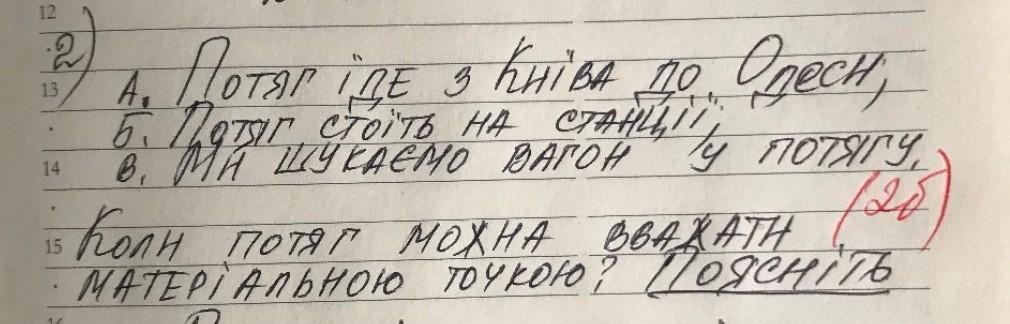 12
2)
13 А. Потяг їде з Києва до Одеси;
Б. Потяг стоїть на станції;
14 В. Ми шукаємо вагон у потягу.
(2б)
15 Коли потяг можна вважати
матеріальною точкою? Поясніть